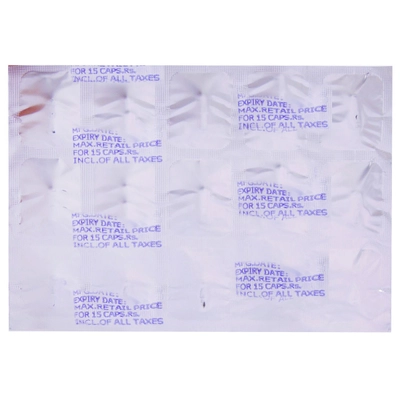 FOR 15 CAPS.Rs.
INCL.OF ALL TAXES
EXPIRY DATE:
MAX.RETAIL PRICE
FOR 15 CAPS.Rs.
INCL.OF ALL TAXES
MFG.DATE:
EXPIRY DATE:
MAX.RETAIL PRICE
FOR 15 CAPS.Rs.
INCL.OF ALL TAXES
EXPIRY DATE:
MAX.RETAIL PRICE
FOR 15 CAPS.Rs.
INCL.OF ALL TAXES
EXPIRY DATE:
MAX.RETAIL PRICE
FOR 15 CAPS.Rs.
INCL.OF ALL TAXES
EXPIRY DATE:
MAX.RETAIL PRICE
FOR 15 CAPS.Rs.
INCL.OF ALL TAXES
EXPIRY DATE:
MAX.RETAIL PRICE
FOR 15 CAPS.Rs.
INCL.OF ALL TAXES